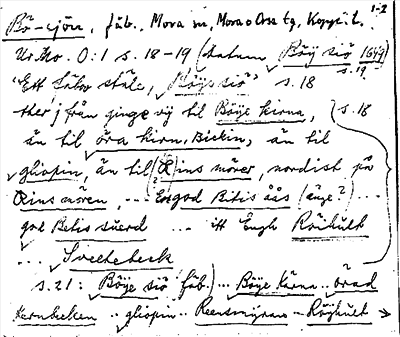 1-2
Bö-sjön, fäb., Mora sn, Mora o Orsa tg, Kopp. l.
Ur. No. 0:1 s. 18-19 (datum, Böÿ siö 1649
s. 19
"Ett Säter ställe, Böÿs siö" s. 18
ther j från ginge vÿ til Böÿe kierna, s. 18
än til öra kirn, Beckin, än til
gliopin, än til Rins mörer, nordist på
Rins mören, ... god Betis åås (änge?) ...
got Betis suerd ... itt Engh Röihult
... Svedebeck
s. 21: Böÿe siö fäb.) ... Böÿe kärna .. örad
kernbecken .. gliopin .. Reensmÿran - Röÿhult →